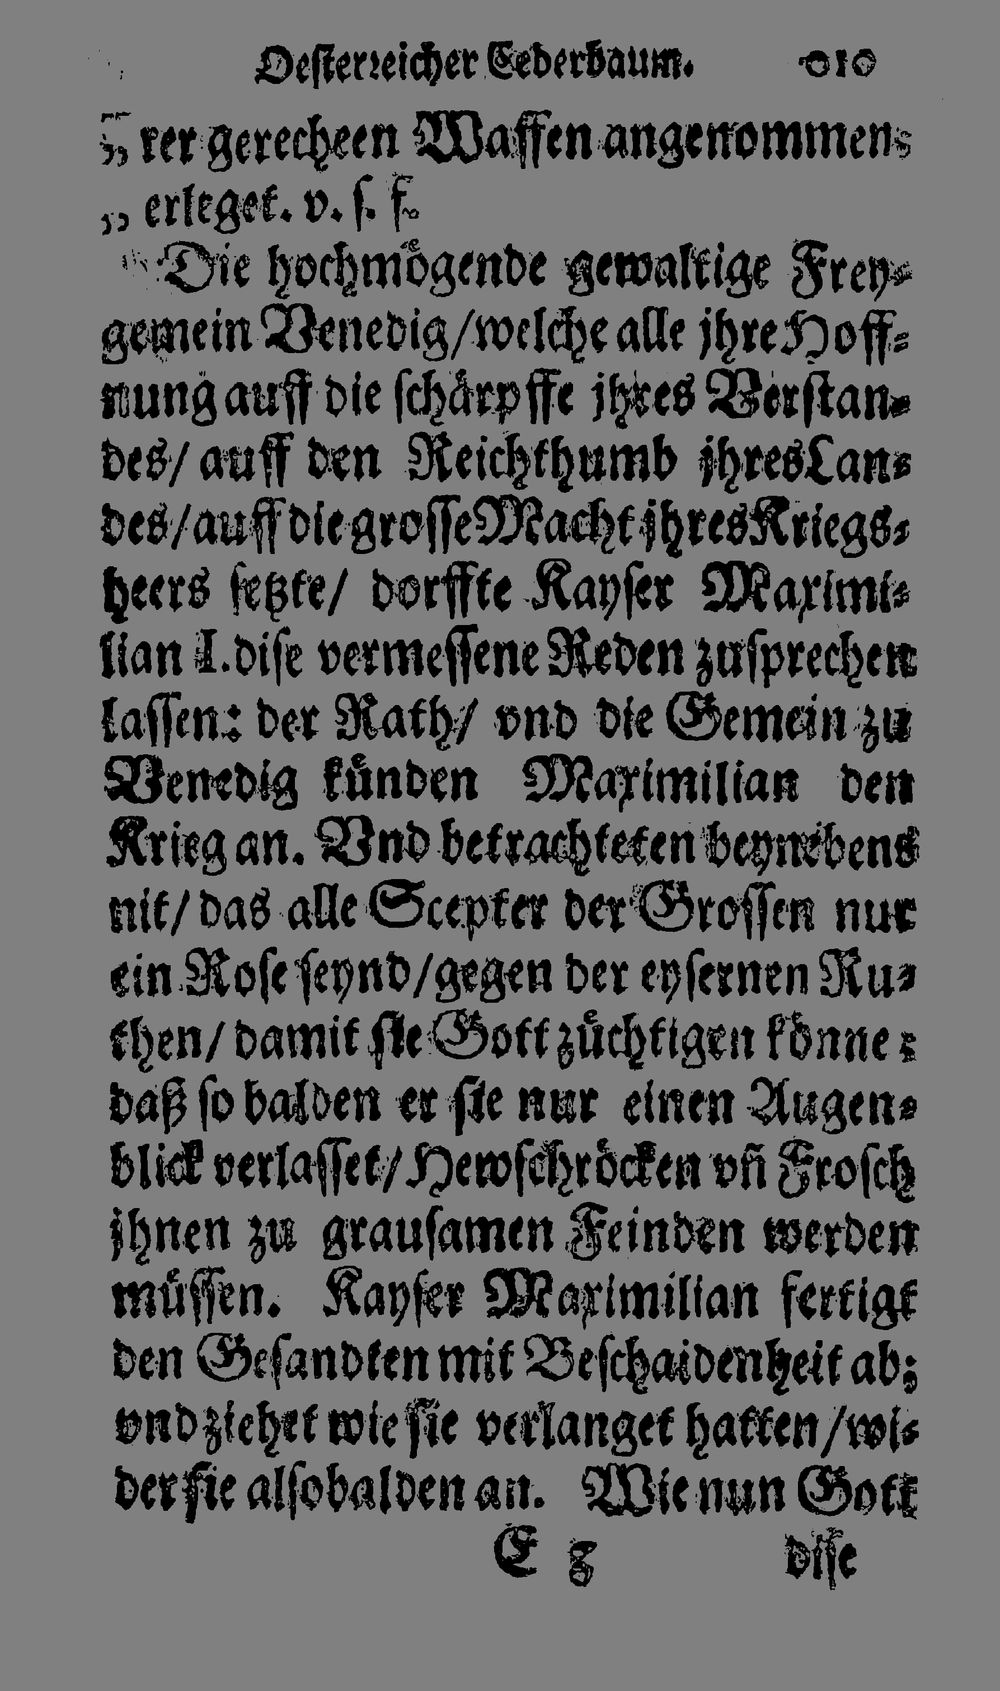 Oesterreicher Cederbaum. 010
„ rer gerechten Waffen angenommen;
„ erleget. v. s. f.
Die hochmögende gewaltige Frey-
gemein Venedig/welche alle jhre Hoff-
nung auff die schärpffe jhres Verstan-
des/ auff den Reichthumb jhres Lan-
des/auff die grosse Macht jhres Kriegs-
heers setzte/ dorffte Kayser Maximi-
lian I. dise vermessene Reden zusprechen
lassen: der Rath/ vnd die Gemein zu
Venedig künden Maximilian den
Krieg an. Vnd betrachteten beynebens
nit/ das alle Scepter der Grossen nur
ein Rose seynd/gegen der eysernen Ru-
then/ damit sie Gott züchtigen könne :
daß so balden er sie nur einen Augen-
blick verlasset/Hewschröcken vñ Frosch
jhnen zu grausamen Feinden werden
müssen. Kayser Maximilian fertigt
den Gesandten mit Beschaidenheit ab;
vnd ziehet wie sie verlanget hatten/wi-
der sie alsobalden an. Wie nun Gott
E 8 dise